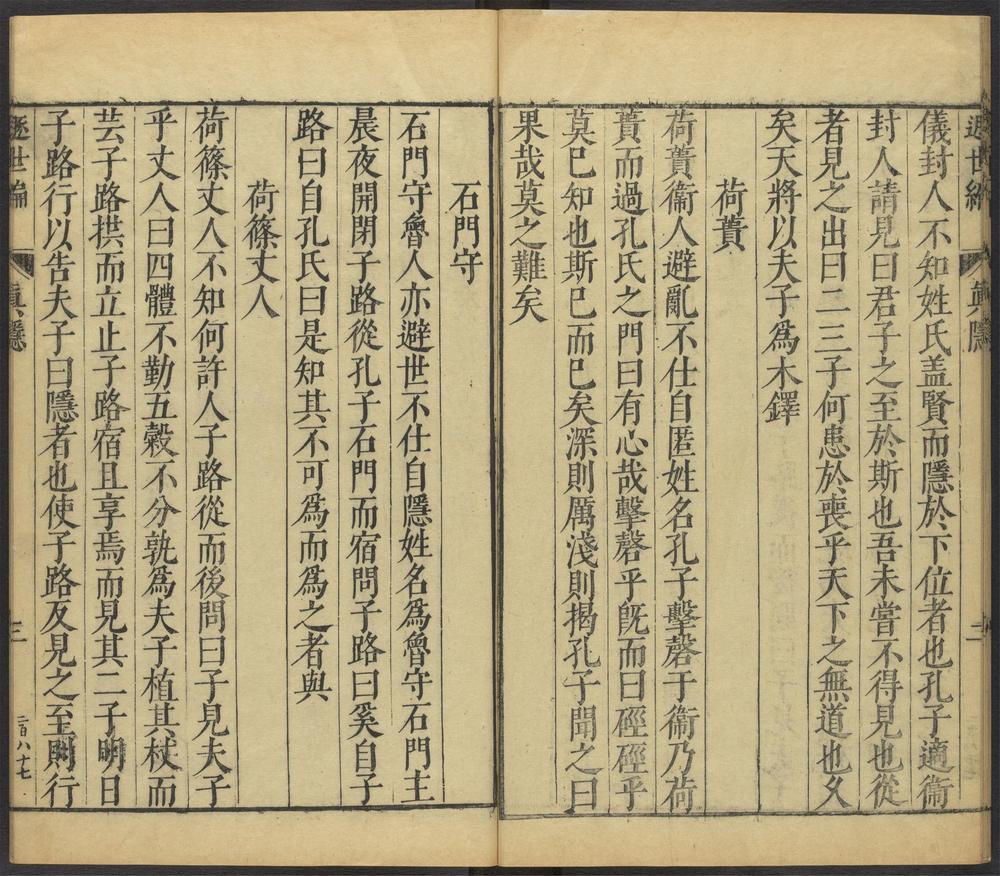 遯世編
真隱
二
儀封人不知姓氏盖賢而隱於下位者也孔子適衞
封人請見曰君子之至於斯也吾未嘗不得見也從
者見之出曰二三子何患於喪乎天下之無道也久
矣天將以夫子爲木鐸
荷蕢
荷蕢衞人避亂不仕自匿姓名孔子擊磬于衞乃荷
蕢而過孔氏之門曰有心哉擊磬乎旣而曰硜硜乎
莫己知也斯已而已矣深則厲淺則揭孔子聞之曰
果哉莫之難矣
石門守
石門守魯人亦避世不仕自隱姓名爲魯守石門主
晨夜開閉子路從孔子石門而宿問子路曰奚自子
路曰自孔氏曰是知其不可爲而爲之者與
荷篠丈人
荷篠丈人不知何許人子路從而後問曰子見夫子
乎丈人曰四體不勤五穀不分孰爲夫子植其杖而
芸子路拱而立止子路宿且享焉而見其二子明日
子路行以告夫子曰隱者也使子路反見之至則行
遯世編
眞隱
三
二百八十七